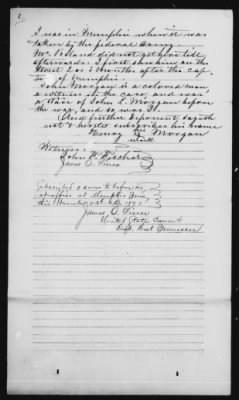 2
I was in Memphis when it was
taken by the federal Army
Mr. Poland did not get here till
afterwards. I first saw him on the
street 2 or 3 months after the cap
of Memphis.
John Morgan is a colored man
a witness in the case, and was
a slave of John L. Morgan before
the war, and so was I.
And further deponent sayeth
not & hereto subscribes his name
Henry Morgan
mark
Witness:
John
James O. Pierce
Subscribed & sworn to before me
at office at Memphis Tenn.
this
James O. Pierce
United States Com
Dist. West Tennessee